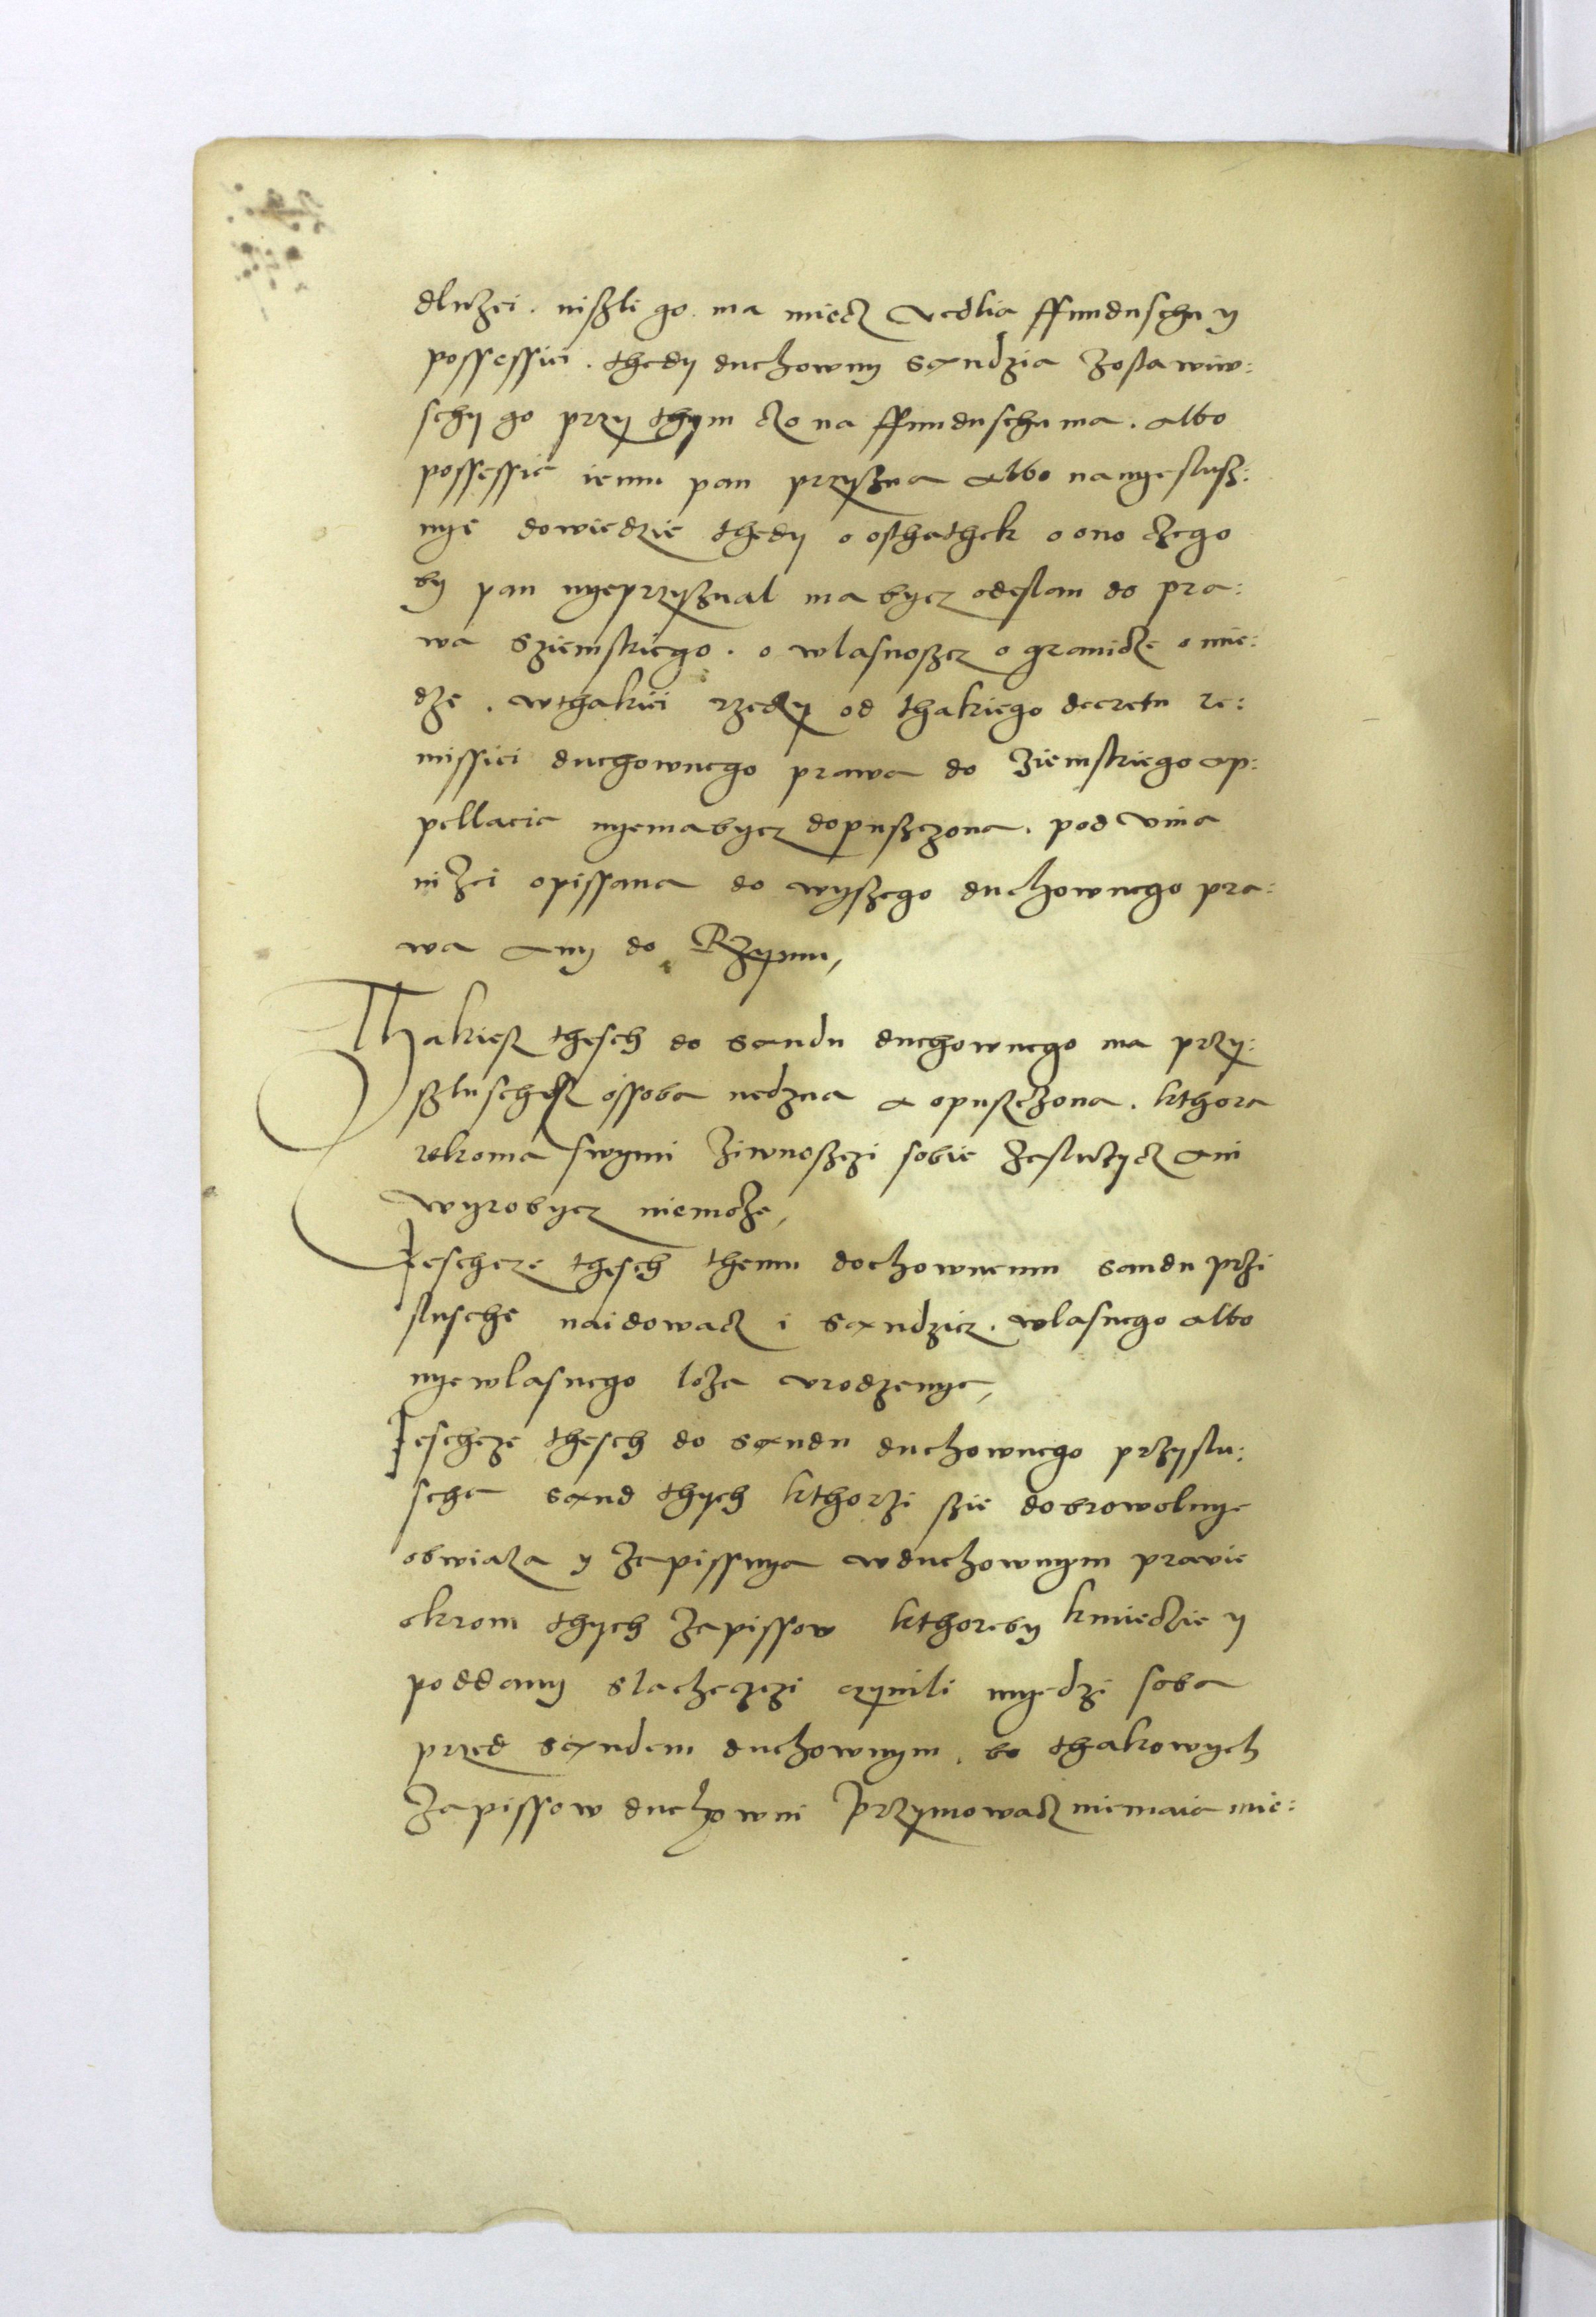 dluzei. nißli go ma miecz vedlia ffunduschu y
possessiei. thedy duchowny sandzia zostawiw:
schy go przy thym czo na ffunduschu ma. albo
possessie iemu pan przyßna albo nanyeslusz:
nye dowiedzie thedy o osthathek o ono czego
by pan nyeprzyßnal ma bycz odeslan do pra:
wa sziemskiego. o wlasnoßcz o granicze o mie:
dze. wthakiei rzeczy od thakiego decretu re:
missiei duchownego prawa do ziemskiego ap:
pellacia nyemabycz dopußczona. pod vina
nizei opissana do wyßego duchownego pra:
wa any do Rzymu,
Thakiesz thesch do sandu duchownego ma przy:
szluschecz ossoba nedzna a opuszczona. kthora
rekoma swymi ziwnoßczi sobie zasluzycz ani
wyrobycz niemoze,
Jescheze thesch themu dochownemu sandu przi
slusche naidowacz i sandzicz. wlasnego albo
nyewlasnego loza vrodzenye,
Jescheze thesch do sandu duchownego przyslu:
scha sand thych kthorzi szie dobrowolnye
obwiaza y zapissuya wduchownym pravie
okrom thych zapissow kthoreby kmieczie y
poddany slacheczczi czynili myedzi soba
przed sandem duchownym. bo thakowych
zapissow duchowni przymowacz niemaia mie: